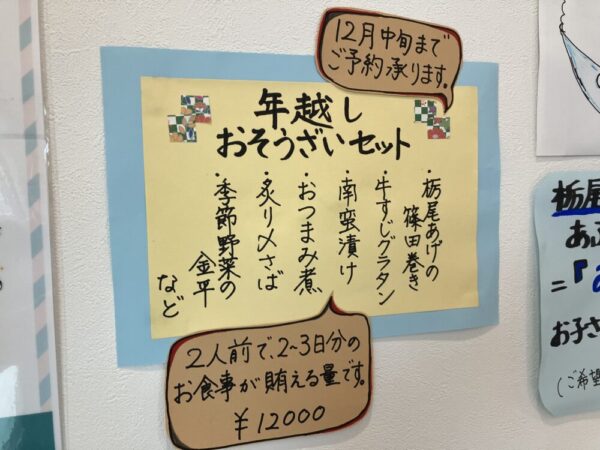 12月中旬まで
ご予約承ります。
年越し
おそうざいセット
・栃尾あげの
篠田巻き
・牛すじグラタン
・南蛮漬け
・おつまみ煮
・炙り〆さば
・季節野菜の
金平
など
2人前で、2~3日分の
お食事が賄える量です。
¥12000
栃尾
あぶ
=「
お子さ
(ご希望